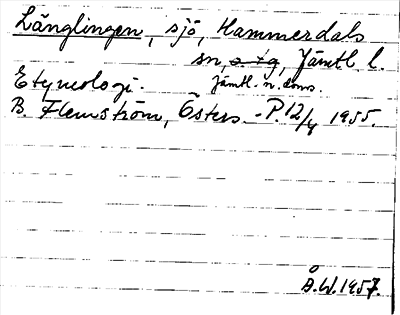 Långlingen, sjö, Hammerdals
sn o. tg, Jämtl. l.
Etymologi. Jämtl. n. doms.
B. Flemström, Östers.-P. 12/4 1955.
Å.W. 1957.